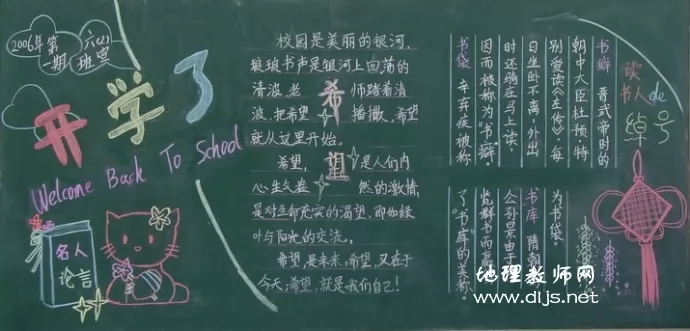 2006年第一期
六(2)班宣
开学了
Welcome Back To School
名人
论言
校园是美丽的银河,
琅琅书声是银河上回荡的
清波,老师踏着清
波,把希望播撒,希望
就从这里开始。
希望
希望,是人们内
心生气盎然的激情,
是对生命充实的渴望,即如绿
叶与阳光的交流。
希望,是未来,希望,又在于
今天;希望,就是我们自己!
读书人de绰号
书癖 晋武帝时的
朝中大臣杜预特
别爱读《左传》,每
日坐卧不离,外出
时还骑在马上读,
因而被称为“书癖”。
书袋 辛弃疾被称
为书袋。
书库 隋朝
公孙景由于
览群书而赢
了“书库”的美称
地理教师网
www.dljs.net